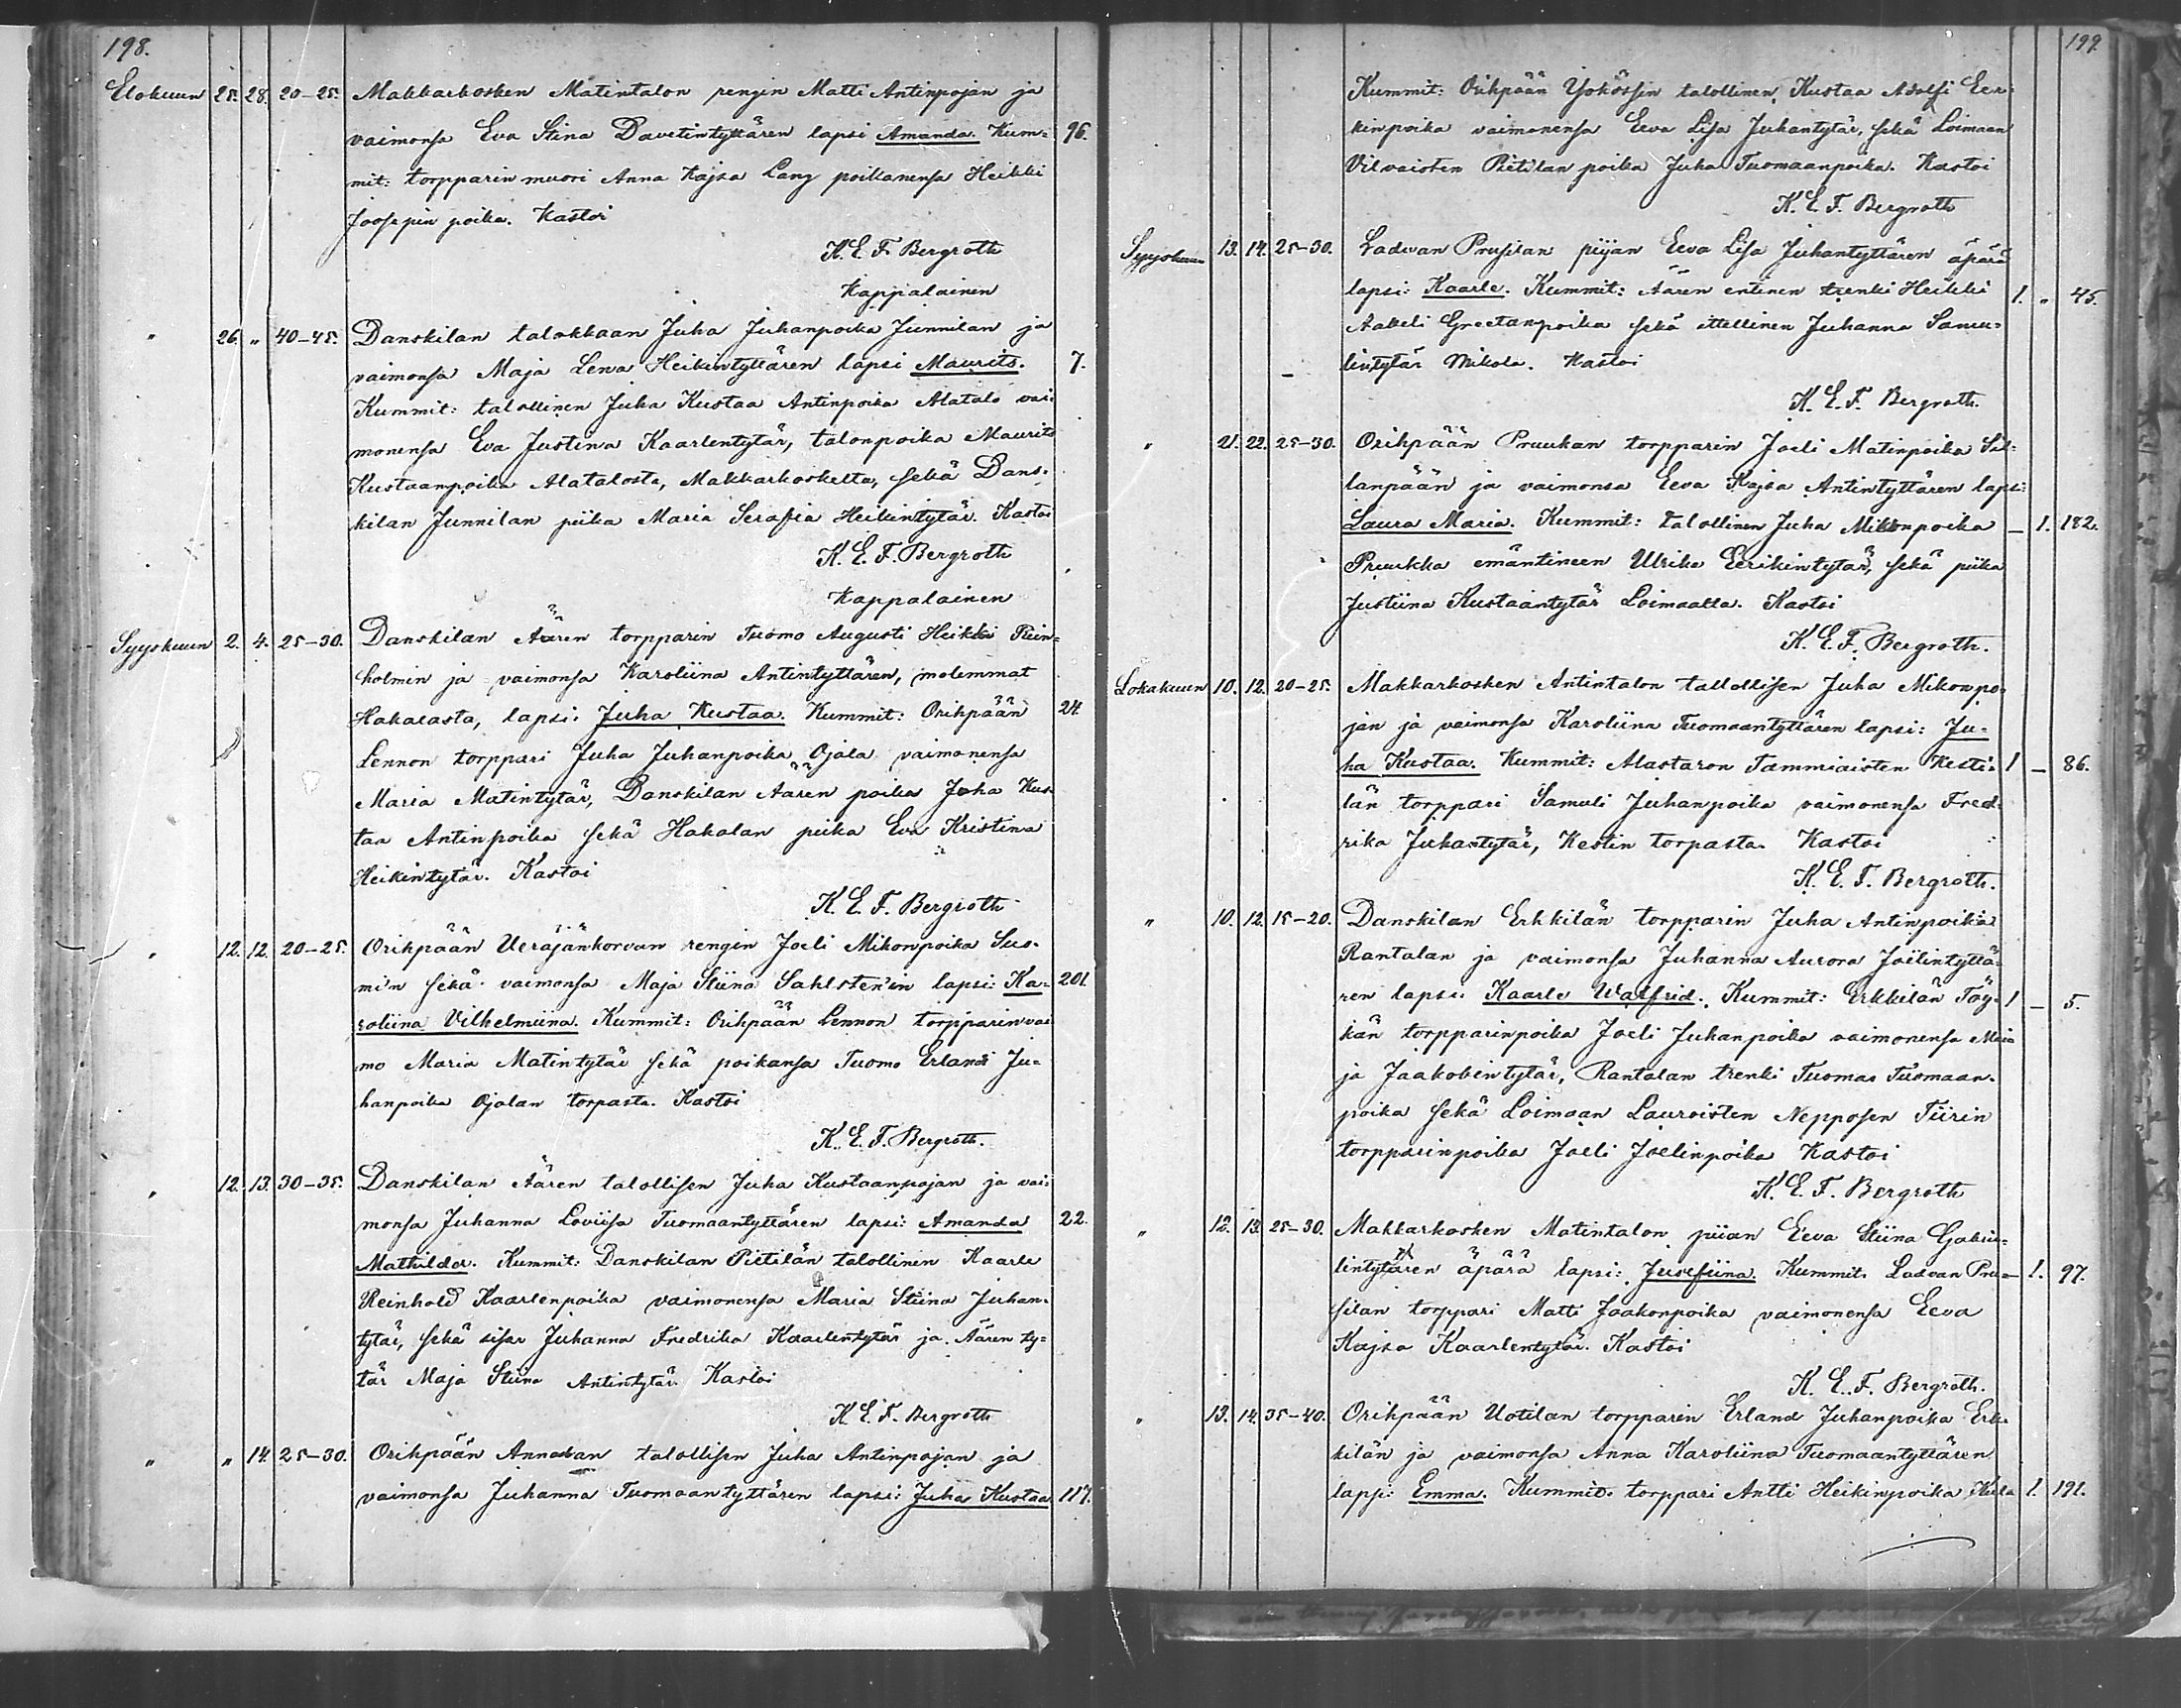 198.
Elokuun 25. 28. 20-25. Makkarkosken Matintalon rengin Matti Antinpojan ja
vaimonsa Eva Stina Davetintyttären lapsi Amanda. Kum= 96.
mit: torpparin muori Anna Kajsa Lang poikanensa Heikki
Joosepin poika. Kastoi
K. E. F. Bergroth
Kappalainen
" 26. " 40-45. Danskilan talokkaan Juha Juhanpoika Junnilan ja
vaimonsa Maja Leena Heikintyttären lapsi Maurits. 7.
Kummit: talollinen Juha Kustaa Antinpoika Alatalo vai=
monensa Eva Justina Kaarlentytär, talonpoika Maurits
Kustaanpoika Alatalosta, Makkarkoskelta, sekä Dans=
kilan Junnilan piika Maria Serafia Heikintytär. Kastoi
K. E. F. Bergroth
Kappalainen
Syyskuun 2. 4. 25-30. Danskilan Äären torpparin Tuomo Augusti Heikki Rein=
holmin ja vaimonsa Karoliina Antintyttären, molemmat
Hakalasta, lapsi: Juha Kustaa. Kummit: Orihpään 24.
Lennon torppari Juha Juhanpoika Ojala vaimonensa
Maria Matintytär, Danskilan Äären poika Juha Kus=
taa Antinpoika sekä Hakalan piika Eva Kristina
Heikintytär. Kastoi
K. E. F. Bergroth
" 12. 12. 20-25. Orihpään Ueräjänkorvan rengin Joeli Mikonpoika Sus=
mi'n sekä vaimonsa Maja Stiina Sahlsten'in lapsi: Ka= 201.
roliina Vilhelmiina. Kummit: Orihpään Lennon torpparinvai
mo Maria Matintytär sekä poikansa Tuomo Erlandi Ju=
hanpoika Ojalan torpasta. Kastoi
K. E. F. Bergroth.
" 12. 13. 30-35. Danskilan Äären talollisen Juha Kustaanpojan ja vai=
monsa Juhanna Loviisa Tuomaantyttären lapsi: Amanda 22.
Mathilda. Kummit: Danskilan Pietilän talollinen Kaarle
Reinhold Kaarlenpoika vaimonensa Maria Stiina Juhan=
tytär, sekä sisar Juhanna Fredrika Kaarlentytär ja Äären ty=
tär Maja Stiina Antintytär. Kastoi
K. E. F. Bergroth
" " 14. 25-30. Orihpään Annalan talollisen Juha Antinpojan ja
vaimonsa Juhanna Tuomaantyttären lapsi: Juha Kustaa 117.
199.
Kummit: Orihpään Yskössin talollinen Kustaa Adolfi Eer=
kinpoika vaimonensa Eeva Lisa Juhantytär, sekä Loimaan
Vilvaisten Pietilan poika Juha Tuomaanpoika. Kastoi
K. E. F. Bergroth
Syyskuun 13. 14. 25-30. Ladwan Prusilan piijan Eeva Lisa Juhantyttären äpärä
lapsi: Kaarle. Kummit: Äären entinen trenki Heikki 1. " 45.
Aabeli Greetanpoika sekä ittellinen Juhanna Samu=
lintytär Mikola. Kastoi
K. E. F. Bergroth.
" 21. 22. 25-30. Orihpään Pruukan torpparin Joeli Matinpoika Sil=
lanpään ja vaimonsa Eeva Kajsa Antintyttären lapsi:
Laura Maria. Kummit: talollinen Juha Mikonpoika – 1. 182.
Pruukka emäntineen Ulrika Eerikintytär, sekä piika
Justiina Kustaantytär Loimaalta. Kastoi
K. E. F. Bergroth.
Lokakuun 10. 12. 20-25. Makkarkosken Antintalon tallollisen Juha Mikonpo=
jan ja vaimonsa Karoliina Tuomaantyttären lapsi: Ju=
ha Kustaa. Kummit: Alastaron Tammiaisten Kesti= 1 – 86.
län torppari Samuli Juhanpoika vaimonensa Fred=
rika Juhantytär, Kestin torpasta. Kastoi
K. E. F. Bergroth.
" 10. 12. 15-20. Danskilan Erkkilän torpparin Juha Antinpoika
Rantalan ja vaimonsa Juhanna Aurora Joelintyttä=
ren lapsi: Kaarle Walfrid. Kummit: Erkkilän Töy= 1 – 5.
kän torpparinpoika Joeli Juhanpoika vaimonensa Mari
ja Jaakobintytär, Rantalan trenki Tuomas Tuomaan=
poika sekä Loimaan Lauroisten Nepposen Tiirin
torpparinpoika Joeli Joelinpoika Kastoi
K. E. F. Bergroth
" 12. 13. 25-30. Makkarkosken Matintalon piian Eeva Stiina Gabrie=
lintyttären äpärä lapsi: Josefiina. Kummit: Ladvan Pru= – 1. 97.
silan torppari Matti Jaakonpoika vaimonensa Eeva
Kajsa Kaarlentytär. Kastoi
K. E. F. Bergroth.
" 13. 14. 35-40. Orihpään Uotilan torpparin Erland Juhanpoika Erk=
kilän ja vaimonsa Anna Karoliina Tuomaantyttären
lapsi: Emma. Kummit: torppari Antti Heikinpoika 1. 191.